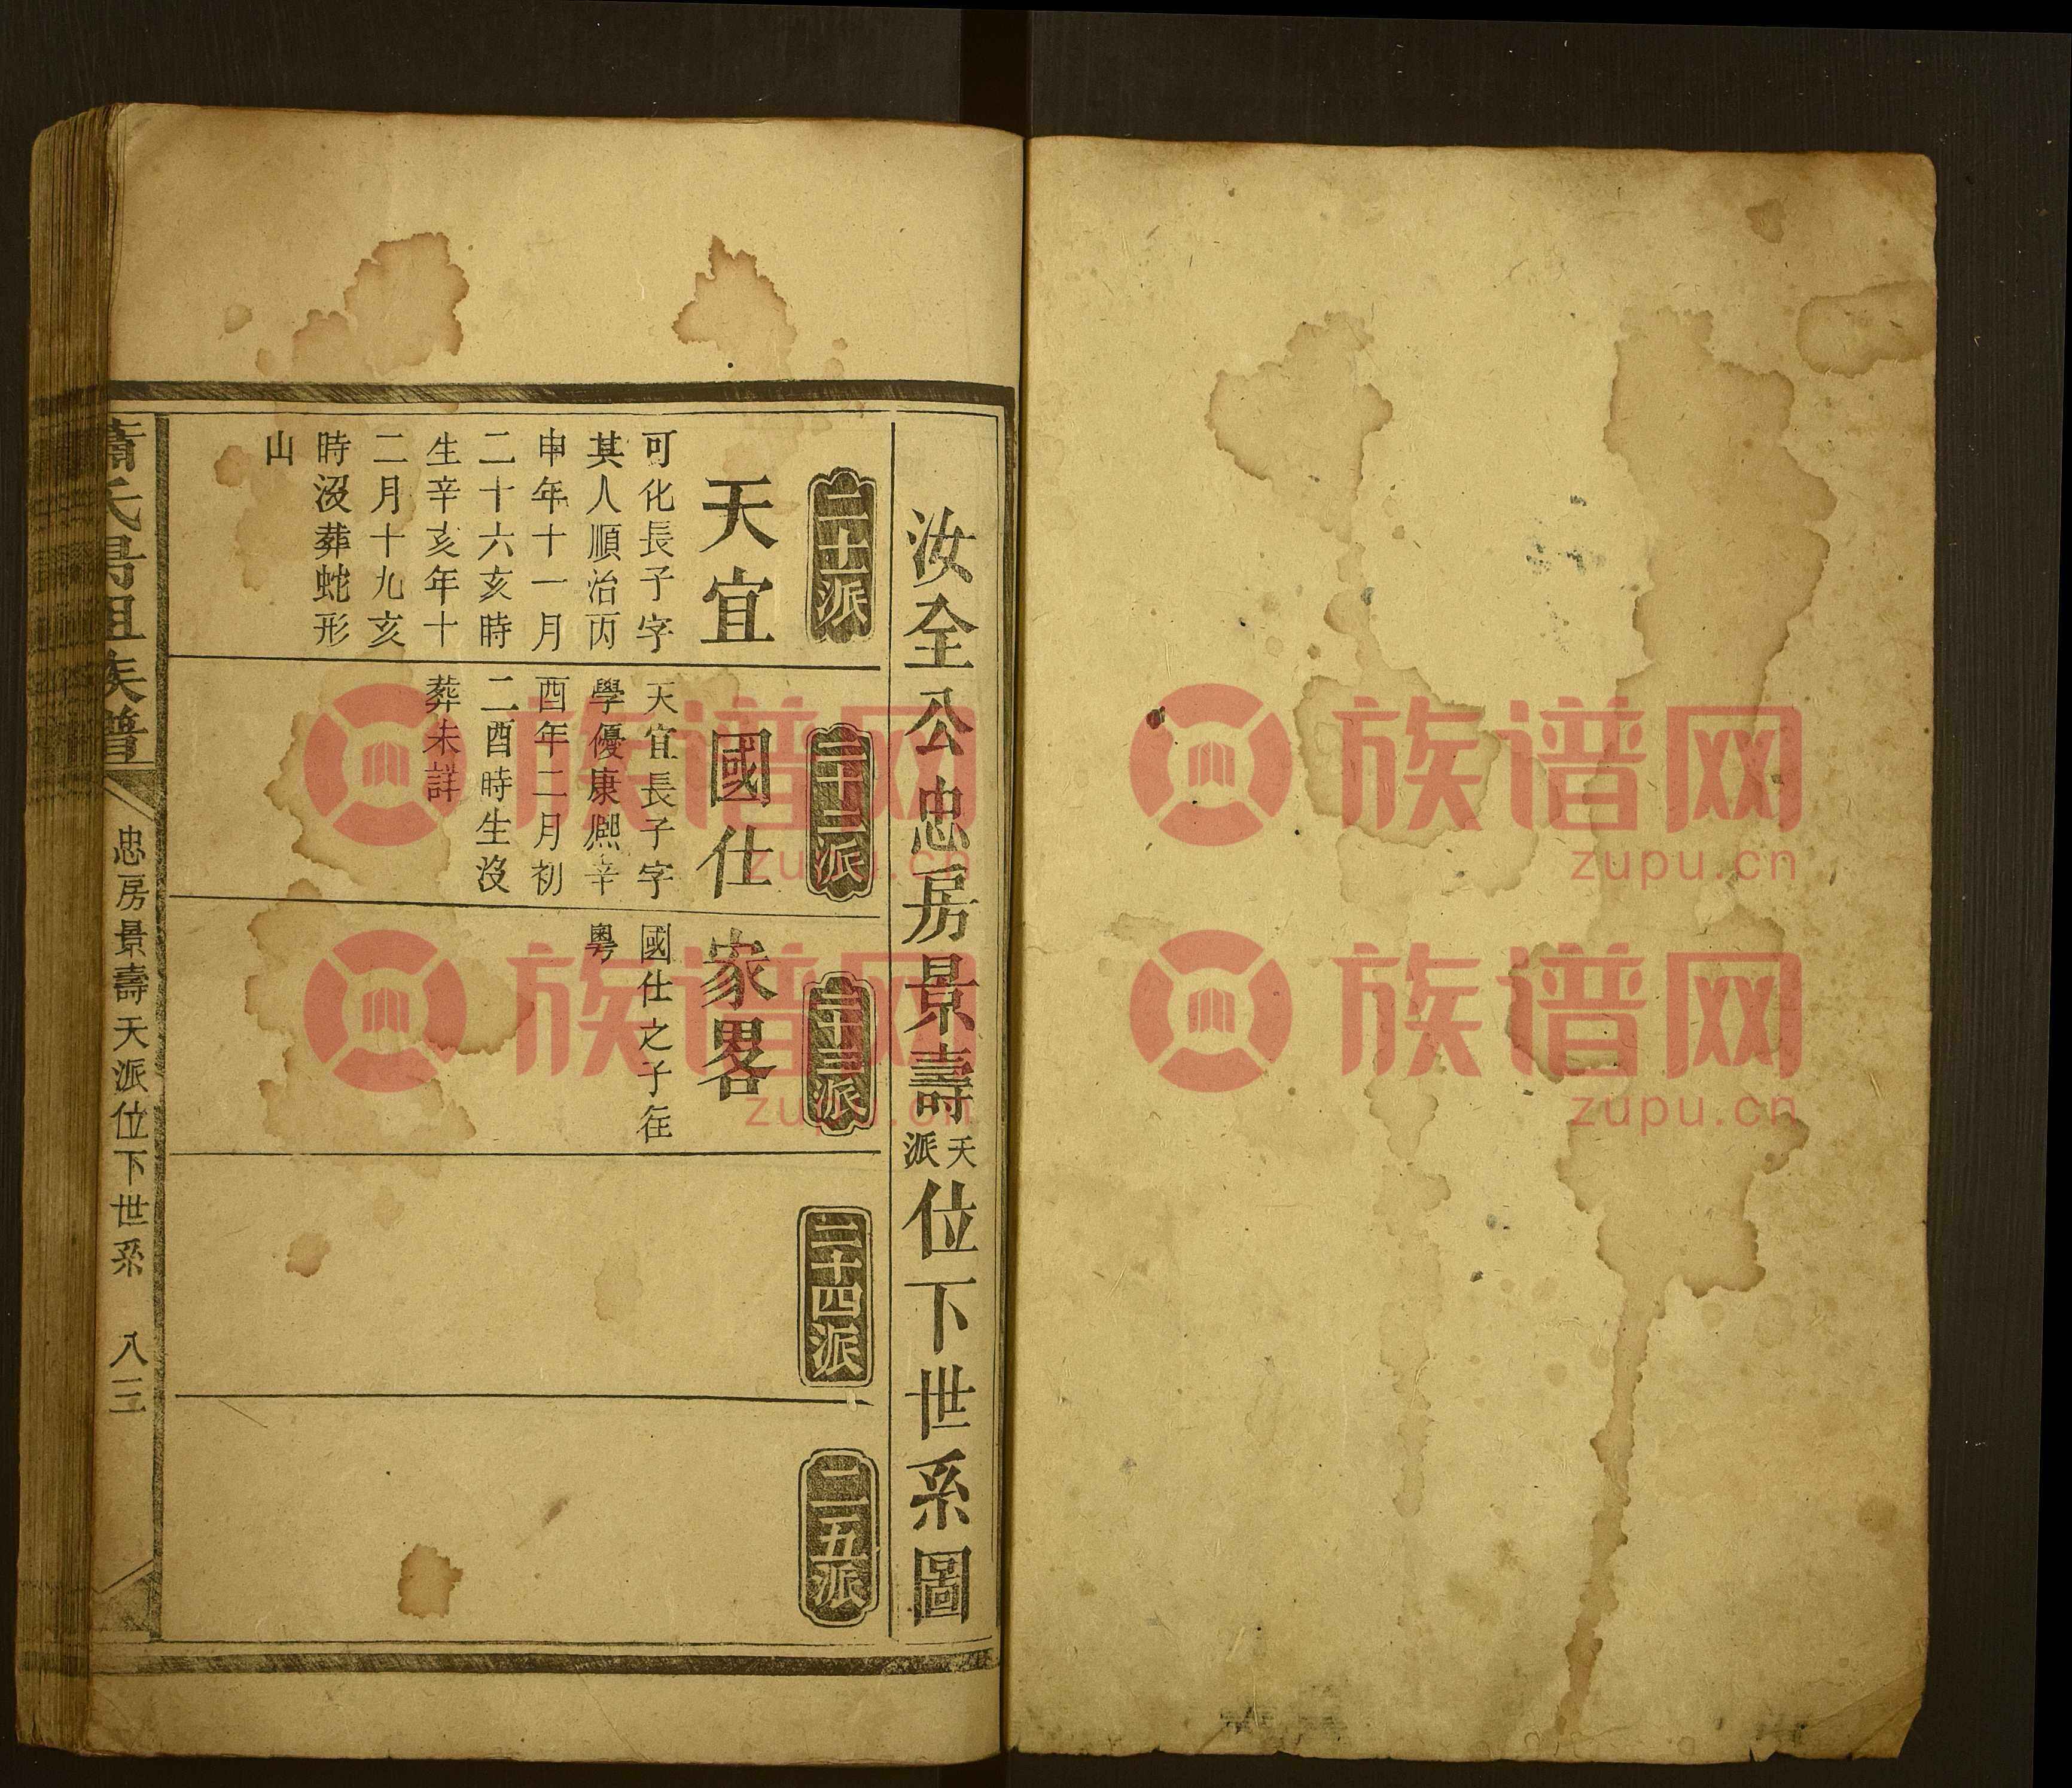 汝全公忠房景壽天派位下世系圖
二十派
天宜
可化長子字
其人順治丙
申年十一月
二十六亥時
生辛亥年十
二月十九亥
時沒葬蛇形
山
二十二派
國仕
天宜長子字
學優康熙辛
酉年二月初
二酉時生沒
葬未詳
二十三派
家畧
國仕之子往
粵
二十四派
二五派
氏
族譜
忠房景壽天派位下世系 八三
族谱网
zupu.cn
族谱网
zupu.cn
族谱网
zupu.cn
族谱网
zupu.cn